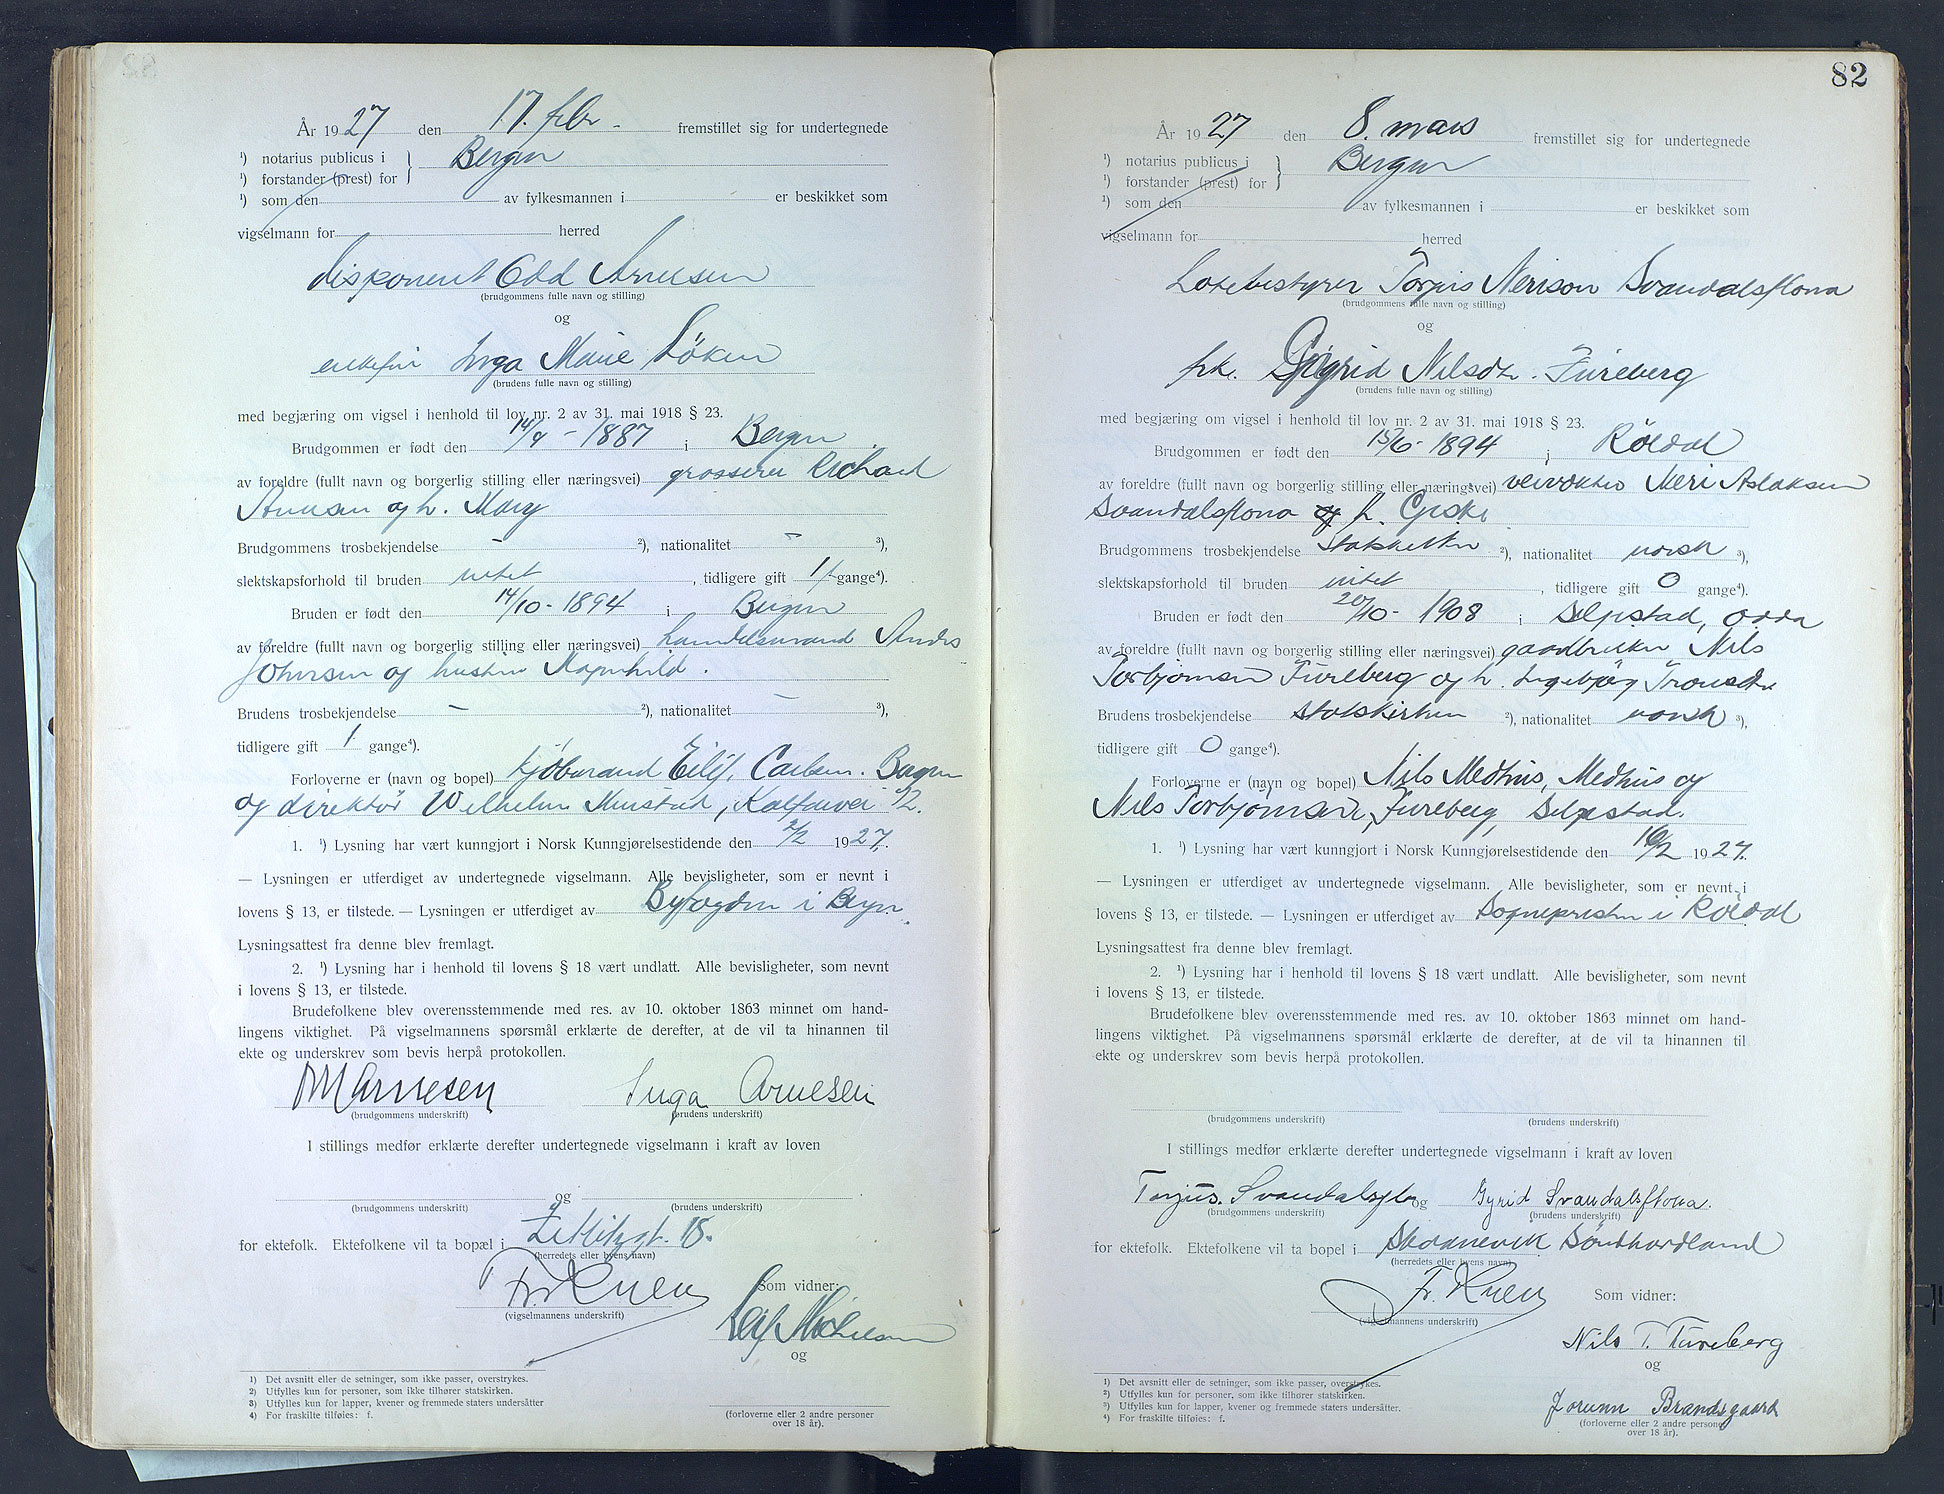 År 1927 den 17. febr. fremstillet sig for undertegnede
¹) notarius publicus i } Bergen
¹) forstander (prest) for
¹) som den av fylkesmannen i er beskikket som
vigselmann for herred
disponent Odd Arnesen
(brudgommens fulle navn og stilling)
og
enkefru Inga Marie Löken
(brudens fulle navn og stilling)
med begjæring om vigsel i henhold til lov nr. 2 av 31. mai 1918 § 23.
Brudgommen er født den 14/9 - 1887 i Bergen
av foreldre (fullt navn og borgerlig stilling eller næringsvei) grosserer Richard
Arnesen og h. Mary
Brudgommens trosbekjendelse - ²), nationalitet - ³),
slektskapsforhold til bruden intet, tidligere gift 1 gange⁴).
Bruden er født den 14/10 - 1894 i Bergen
av foreldre (fullt navn og borgerlig stilling eller næringsvei) handelsmand Andrs
Johnsen og hustru Ragnhild.
Brudens trosbekjendelse - ²), nationalitet - ³),
tidligere gift 1 gange⁴).
Forloverne er (navn og bopel) kjöbmand Eilif Carlsen. Bergen
og direktör Wilhelm Mustad, Kalfarvei 12.
1. ¹) Lysning har vært kunngjort i Norsk Kunngjørelsestidende den 2/2 1927.
— Lysningen er utferdiget av undertegnede vigselmann. Alle bevisligheter, som er nevnt i
lovens § 13, er tilstede. — Lysningen er utferdiget av Byfogden i Bergen
Lysningsattest fra denne blev fremlagt.
2. ¹) Lysning har i henhold til lovens § 18 vært undlatt. Alle bevisligheter, som nevnt
i lovens § 13, er tilstede.
Brudefolkene blev overensstemmende med res. av 10. oktober 1863 minnet om hand-
lingens viktighet. På vigselmannens spørsmål erklærte de derefter, at de vil ta hinannen til
ekte og underskrev som bevis herpå protokollen.
Arnesen Inga Arnesen
(brudgommens underskrift) (brudens underskrift)
I stillings medfør erklærte derefter undertegnede vigselmann i kraft av loven
og
(brudgommens underskrift) (brudens underskrift)
for ektefolk. Ektefolkene vil ta bopæl i 18.
(herredets eller byens navn)
Fr. Knen Som vidner:
(vigselmannens underskrift)
Leif Michelsen
og
¹) Det avsnitt eller de setninger, som ikke passer, overstrykes.
²) Utfylles kun for personer, som ikke tilhører statskirken.
³) Utfylles kun for lapper, kvener og fremmede staters undersåtter
⁴) For fraskilte tilføies: f.
(forloverne eller 2 andre personer
over 18 år).
82
År 1927 den 8. mars fremstillet sig for undertegnede
¹) notarius publicus i } Bergen
¹) forstander (prest) for
¹) som den av fylkesmannen i er beskikket som
vigselmann for herred
Torgius Nerison Svandalsflona
(brudgommens fulle navn og stilling)
og
frk. Gyrid Nilsdtr. Fureberg
(brudens fulle navn og stilling)
med begjæring om vigsel i henhold til lov nr. 2 av 31. mai 1918 § 23.
Brudgommen er født den 15/6 - 1894 i Röldal
av foreldre (fullt navn og borgerlig stilling eller næringsvei) veivokter Neri Aslaksen
Svandalsflona og h. Gjski
Brudgommens trosbekjendelse Statskirken ²), nationalitet norsk ³),
slektskapsforhold til bruden intet, tidligere gift 0 gange⁴).
Bruden er født den 20/10 - 1908 i Selpstad, Odda
av foreldre (fullt navn og borgerlig stilling eller næringsvei) gaardbruker Nils
Torbjörnsen Fureberg og h. Ingebjörg Tronsdtr
Brudens trosbekjendelse Statskirken ²), nationalitet norsk ³),
tidligere gift 0 gange⁴).
Forloverne er (navn og bopel) Nils Medhus, Medhus og
Nils Torbjörnsen, Fureberg, Selpstad.
1. ¹) Lysning har vært kunngjort i Norsk Kunngjørelsestidende den 16/2 1927.
— Lysningen er utferdiget av undertegnede vigselmann. Alle bevisligheter, som er nevnt i
lovens § 13, er tilstede. — Lysningen er utferdiget av Sognepresten i Röldal
Lysningsattest fra denne blev fremlagt.
2. ¹) Lysning har i henhold til lovens § 18 vært undlatt. Alle bevisligheter, som nevnt
i lovens § 13, er tilstede.
Brudefolkene blev overensstemmende med res. av 10. oktober 1863 minnet om hand-
lingens viktighet. På vigselmannens spørsmål erklærte de derefter, at de vil ta hinannen til
ekte og underskrev som bevis herpå protokollen.
(brudgommens underskrift) (brudens underskrift)
I stillings medfør erklærte derefter undertegnede vigselmann i kraft av loven
Torjus. Svandalsflo og Gyrid Svandalsflona.
(brudgommens underskrift) (brudens underskrift)
for ektefolk. Ektefolkene vil ta bopel i Skaanevik Söndhordland
(herredets eller byens navn)
Fr. Knen Som vidner:
(vigselmannens underskrift)
Nils T. Fureberg
og
¹) Det avsnitt eller de setninger, som ikke passer, overstrykes.
²) Utfylles kun for personer, som ikke tilhører statskirken.
³) Utfylles kun for lapper, kvener og fremmede staters undersåtter.
⁴) For fraskilte tilføies: f.
Jorunn Brandsgaard
(forloverne eller 2 andre personer
over 18 år).